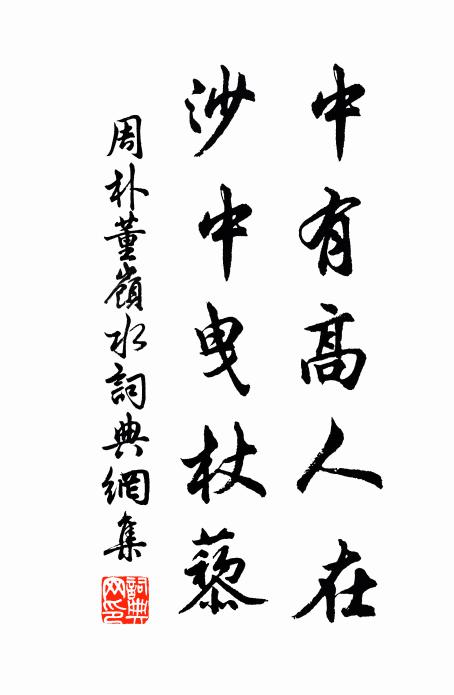 中有高人在
沙中曳杖藜
周朴董嶺水詞典網集
詞典
网印